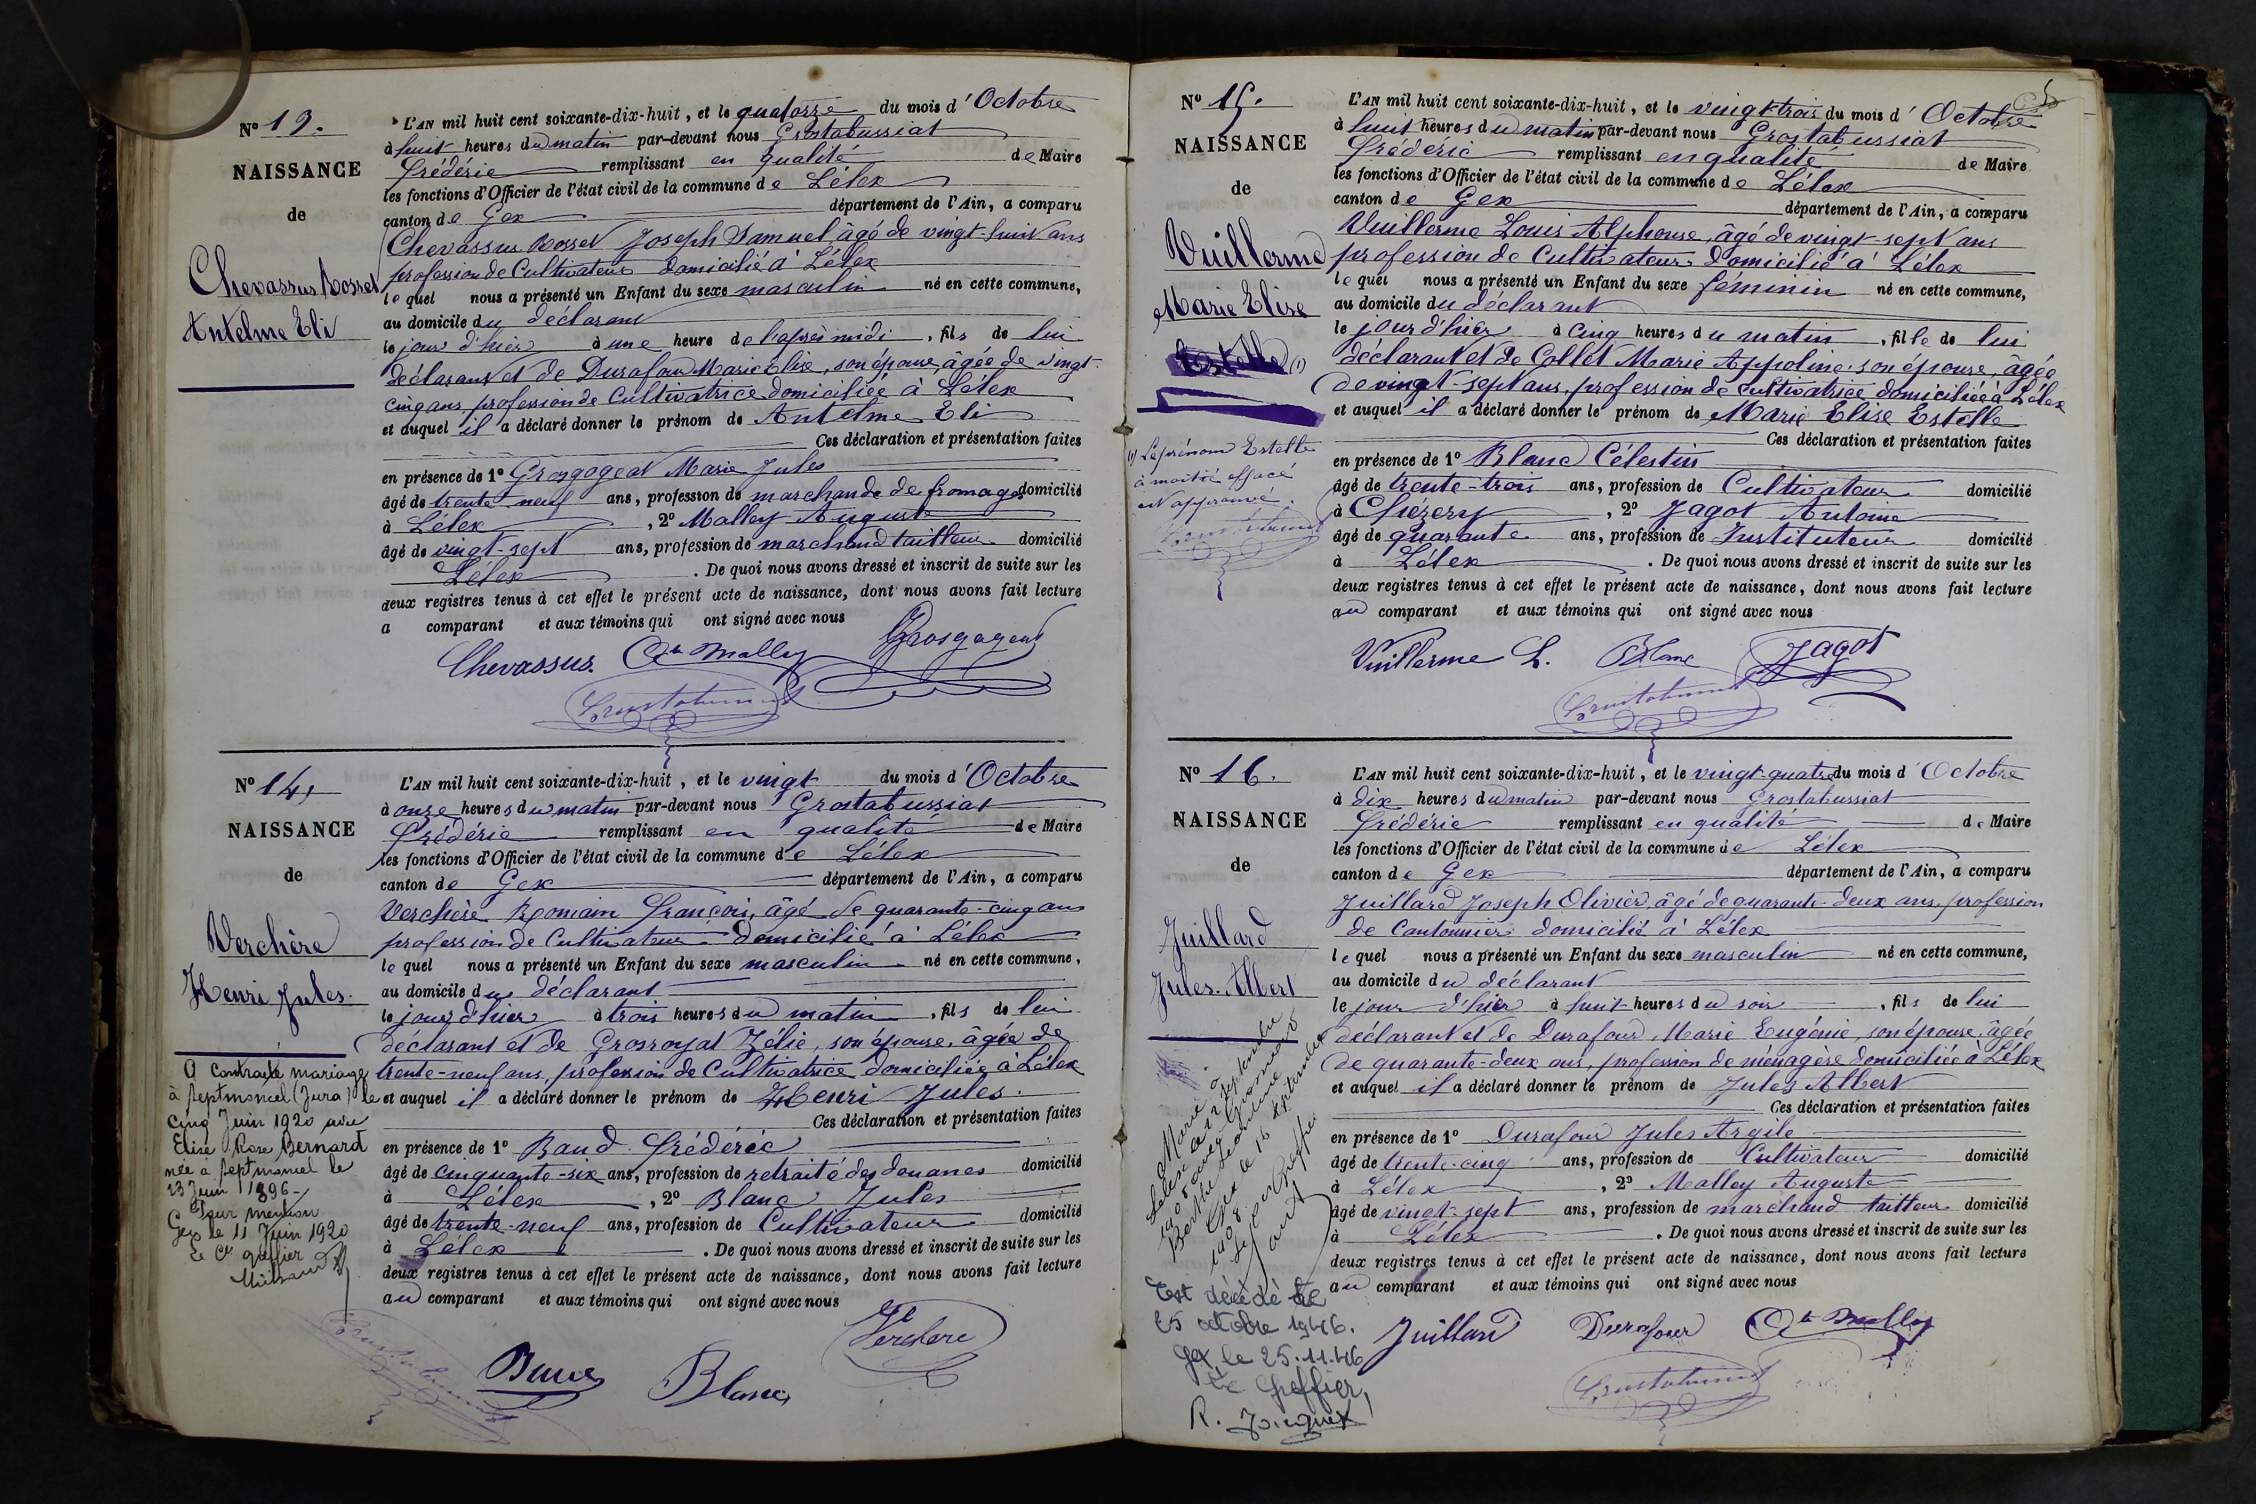 No 13.
NAISSANCE
de
Chevassus Rosset
Antelme Eli
L'AN mil huit cent soixante-dix-huit, et le quatorze du mois d'Octobre
à huit heures du matin par-devant nous Grostabussiat
Frédéric remplissant en qualité de Maire
les fonctions d'Officier de l'état civil de la commune de Lélex
canton de Gex département de l'Ain, a comparu
Chevassus Rosset Joseph Samuel âgé de vingt-huit ans
profession de Cultivateur domicilié à Lélex
lequel nous a présenté un Enfant du sexe masculin né en cette commune,
au domicile du déclarant
le jour d'hier à une heure de l'après midi, fils de lui
déclarant et de Durafour Marie Elise, son épouse, âgée de vingt-
cinq ans, profession de Cultivatrice domiciliée à Lélex
et auquel il a déclaré donner le prénom de Antelme Eli
Ces déclaration et présentation faites
en présence de 1º Grosgogeat Marie Jules
âgé de trente neuf ans, profession de marchand de fromages domicilié
à Lélex, 2º Malley Auguste
âgé de vingt-sept ans, profession de marchand tailleur domicilié
Lélex. De quoi nous avons dressé et inscrit de suite sur les
deux registres tenus à cet effet le présent acte de naissance, dont nous avons fait lecture
a comparant et aux témoins qui ont signé avec nous
Chevassus. Ate Malley Grosgogeat
Grostabussiat
No 14,
NAISSANCE
de
Verchère
Henri Jules.
A contracté mariage
à Septmoncel (Jura) le
cinq Juin 1920 avec
Elise Rose Bernard
née à Septmoncel le
23 Juin 1896-/
Pour mention
Gex le 11 Juin 1920
Le Cs greffier
L'AN mil huit cent soixante-dix-huit, et le vingt du mois d'Octobre
à onze heures du matin par-devant nous Grostabussiat
Frédéric remplissant en qualité de Maire
les fonctions d'Officier de l'état civil de la commune de Lélex
canton de Gex département de l'Ain, a comparu
Verchère Romain François, âgé de quarante-cinq ans
profession de Cultivateur domicilié à Lélex
lequel nous a présenté un Enfant du sexe masculin né en cette commune,
au domicile du déclarant
le jour d'hier à trois heures du matin, fils de lui
déclarant et de Grosroyat Zélie, son épouse, âgée de
trente-neuf ans, profession de Cultivatrice domiciliée à Lélex
et auquel il a déclaré donner le prénom de Henri Jules.
Ces déclaration et présentation faites
en présence de 1º Baud Frédéric
âgé de cinquante-six ans, profession de retraité des douanes domicilié
à Lélex, 2º Blanc Jules
âgé de trente-neuf ans, profession de Cultivateur domicilié
à Lélex. De quoi nous avons dressé et inscrit de suite sur les
deux registres tenus à cet effet le présent acte de naissance, dont nous avons fait lecture
au comparant et aux témoins qui ont signé avec nous
Verchere
Blanc
Grostabussiat
5
No 15.
NAISSANCE
de
Vuillerme
Marie Elise
Estelle (1)
(1) Le prénom Estelle
à moitié effacé
est approuvé.
Grostabussiat
L'AN mil huit cent soixante-dix-huit, et le vingt-trois du mois d'Octobre
à huit heures du matin par-devant nous Grostabussiat
Frédéric remplissant en qualité de Maire
les fonctions d'Officier de l'état civil de la commune de Lélex
canton de Gex département de l'Ain, a comparu
Vuillerme Louis Alphonse, âgé de vingt-sept ans
profession de Cultivateur domicilié à Lélex
lequel nous a présenté un Enfant du sexe féminin né en cette commune,
au domicile du déclarant
le jour d'hier à cinq heures du matin, fille de lui
déclarant et de Collet Marie Appoline son épouse, âgée
de vingt-sept ans, profession de cultivatrice domiciliée à Lélex
et auquel il a déclaré donner le prénom de Marie Elise Estelle
Ces déclaration et présentation faites
en présence de 1º Blanc Célestin
âgé de trente-trois ans, profession de Cultivateur domicilié
à Chézery, 2º Jagot Antoine
âgé de quarante ans, profession de Instituteur domicilié
à Lélex. De quoi nous avons dressé et inscrit de suite sur les
deux registres tenus à cet effet le présent acte de naissance, dont nous avons fait lecture
au comparant et aux témoins qui ont signé avec nous
Vuillerme L. Blanc Jagot
Grostabussiat
No 16.
NAISSANCE
de
Juillard
Jules-Albert
Marié à
Lélex le 12 septembre
1908 avec
Berthe
Gex le 16 septembre
1908
Le greffier
Est décédé le
25 octobre 1946.
Gex, le 25.11.46
Le Greffier,
L'AN mil huit cent soixante-dix-huit, et le vingt-quatre du mois d'Octobre
à dix heures du matin par-devant nous Grostabussiat
Frédéric remplissant en qualité de Maire
les fonctions d'Officier de l'état civil de la commune de Lélex
canton de Gex département de l'Ain, a comparu
Juillard Joseph Olivier, âgé de quarante-deux ans, profession
de Cantonnier domicilié à Lélex
lequel nous a présenté un Enfant du sexe masculin né en cette commune,
au domicile du déclarant
le jour d'hier à huit heures du soir, fils de lui
déclarant et de Durafour, Marie Eugénie, son épouse, âgée
de quarante-deux ans, profession de ménagère domiciliée à Lélex
et auquel il a déclaré donner le prénom de Jules Albert
Ces déclaration et présentation faites
en présence de 1º Durafour Jules Argile
âgé de trente-cinq ans, profession de Cultivateur domicilié
à Lélex, 2º Malley Auguste
âgé de vingt-sept ans, profession de marchand tailleur domicilié
à Lélex. De quoi nous avons dressé et inscrit de suite sur les
deux registres tenus à cet effet le présent acte de naissance, dont nous avons fait lecture
au comparant et aux témoins qui ont signé avec nous
Juillard Durafour Ate Malley
Grostabussiat